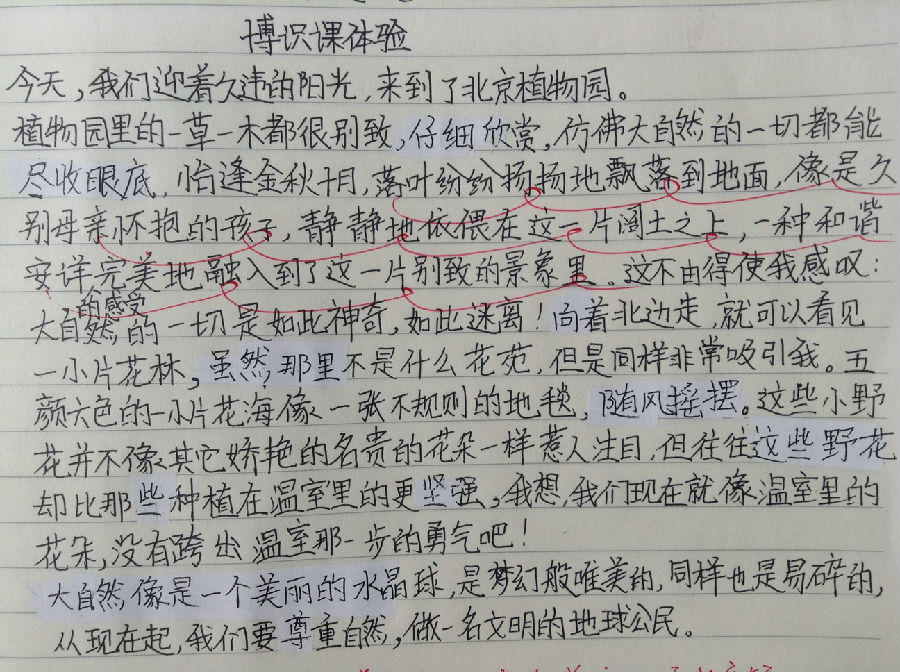 博识课体验
今天，我们迎着久违的阳光，来到了北京植物园。
植物园里的一草一木都很别致，仔细欣赏，仿佛大自然的一切都能
尽收眼底，怡逢金秋十月，落叶纷纷扬扬地飘落到地面，像是久
别母亲怀抱的孩子，静静地依偎在这一片阔土之上，一种和谐
安详完美地融入到了这一片别致的景象里。这不由得使我感叹：
的感受
大自然的一切是如此神奇，如此迷离！向着北边走，就可以看见
一小片花林，虽然那里不是什么花苑，但是同样非常吸引我。五
颜六色的一小片花海像一张不规则的地毯，随风摇摆。这些小野
花并不像其它娇艳的名贵的花朵一样惹人注目，但往往这些野花
却比那些种植在温室里的更坚强，我想，我们现在就像温室里的
花朵，没有跨出温室那一步的勇气吧！
大自然像是一个美丽的水晶球，是梦幻般唯美的，同样也是易碎的，
从现在起，我们要尊重自然，做一名文明的地球公民。